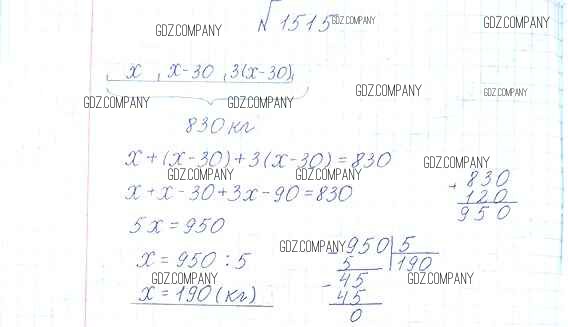 № 1515
GDZ.COMPANY GDZ.COMPANY GDZ.COMPANY
x, x-30, 3(x-30)
GDZ.COMPANY GDZ.COMPANY GDZ.COMPANY GDZ.COMPANY
830 кг
x+(x-30)+3(x-30)=830
GDZ.COMPANY GDZ.COMPANY GDZ.COMPANY
x+x-30+3x-90=830
+830
120
950
5x=950
x=950:5
GDZ.COMPANY
950 | 5
5 190
-45
45
0
GDZ.COMPANY GDZ.COMPANY
x=190(кг)